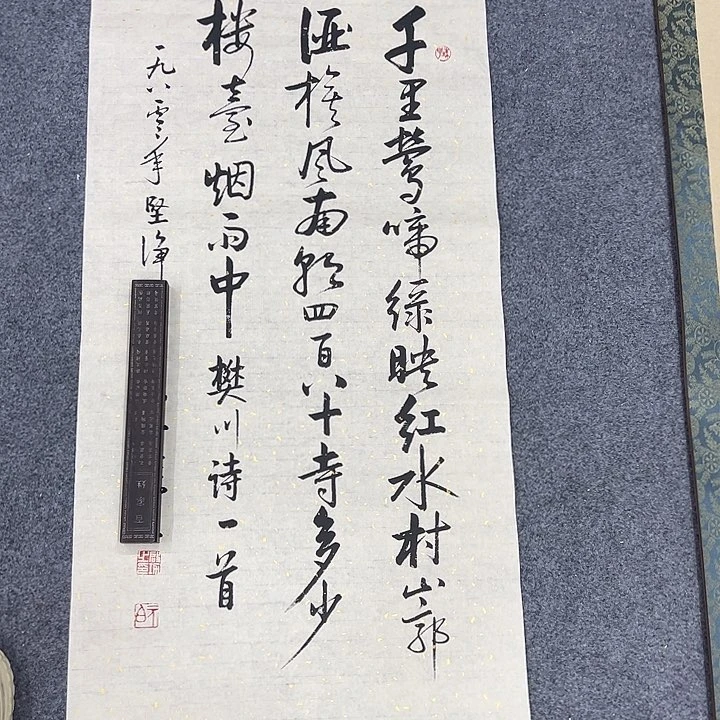 千里莺啼绿映红水村山郭
酒旗风南朝四百八十寺多少
楼臺烟雨中 樊川诗一首
一九八零年 坚净